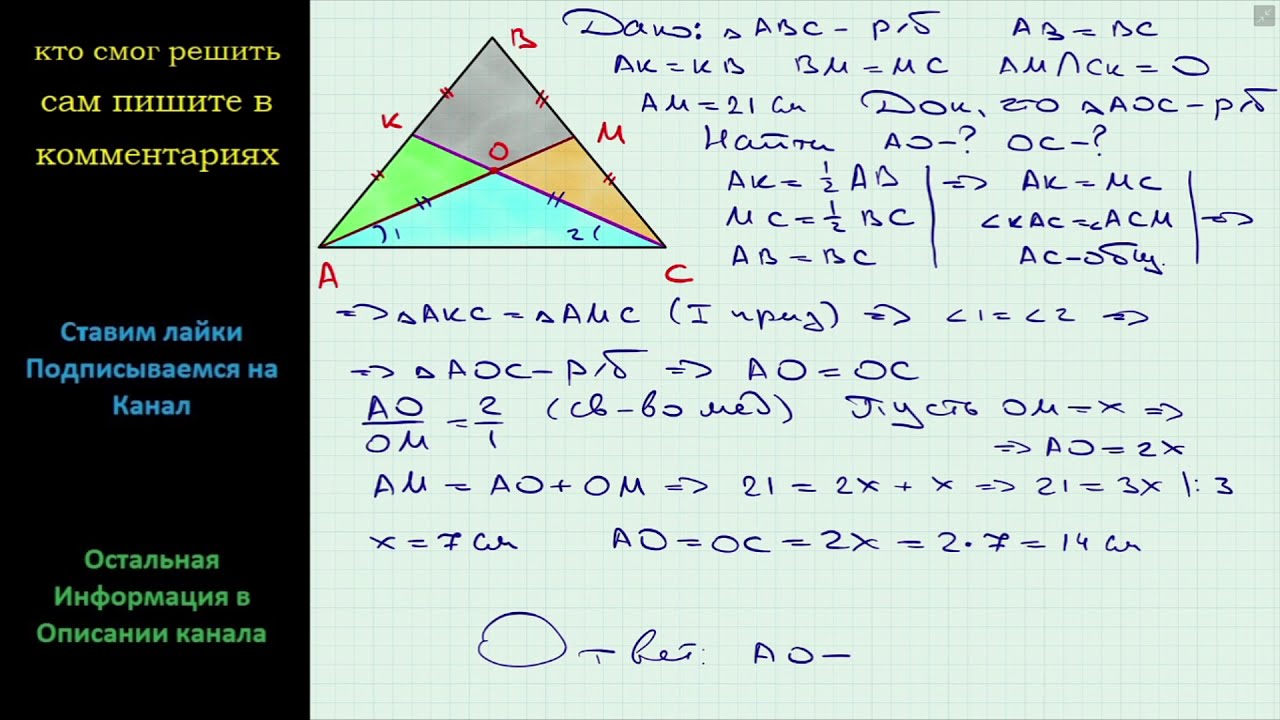 кто смог решить
сам пишите в
комментариях
Ставим лайки
Подписываемся на
Канал
Остальная
Информация в
Описании канала
B
K
M
O
1
2
A
C
Дано: △ABC - р/б AB = BC
AK = KB BM = MC AM ∩ CK = O
AM = 21 см Док, что △AOC - р/б
Найти AO - ? OC - ?
AK = 1/2 AB => AK = MC
MC = 1/2 BC ∠KAC = ∠ACM =>
AB = BC AC - общ.
=> △AKC = △AMC (I призн) => ∠1 = ∠2 =>
=> △AOC - р/б => AO = OC
AO/OM = 2/1 (св-во мед) Пусть OM = x =>
=> AO = 2x
AM = AO + OM => 21 = 2x + x => 21 = 3x |: 3
x = 7 см AO = OC = 2x = 2 · 7 = 14 см
Ответ: AO =